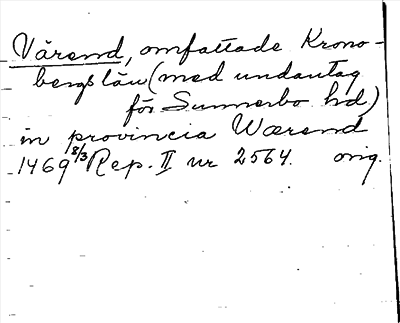 Värend, omfattade Krono-
bergs län (med undantag
för Sunnerbo hd)
in provincia Wærend
1469 8/3 Rep. II nr 2564. orig.